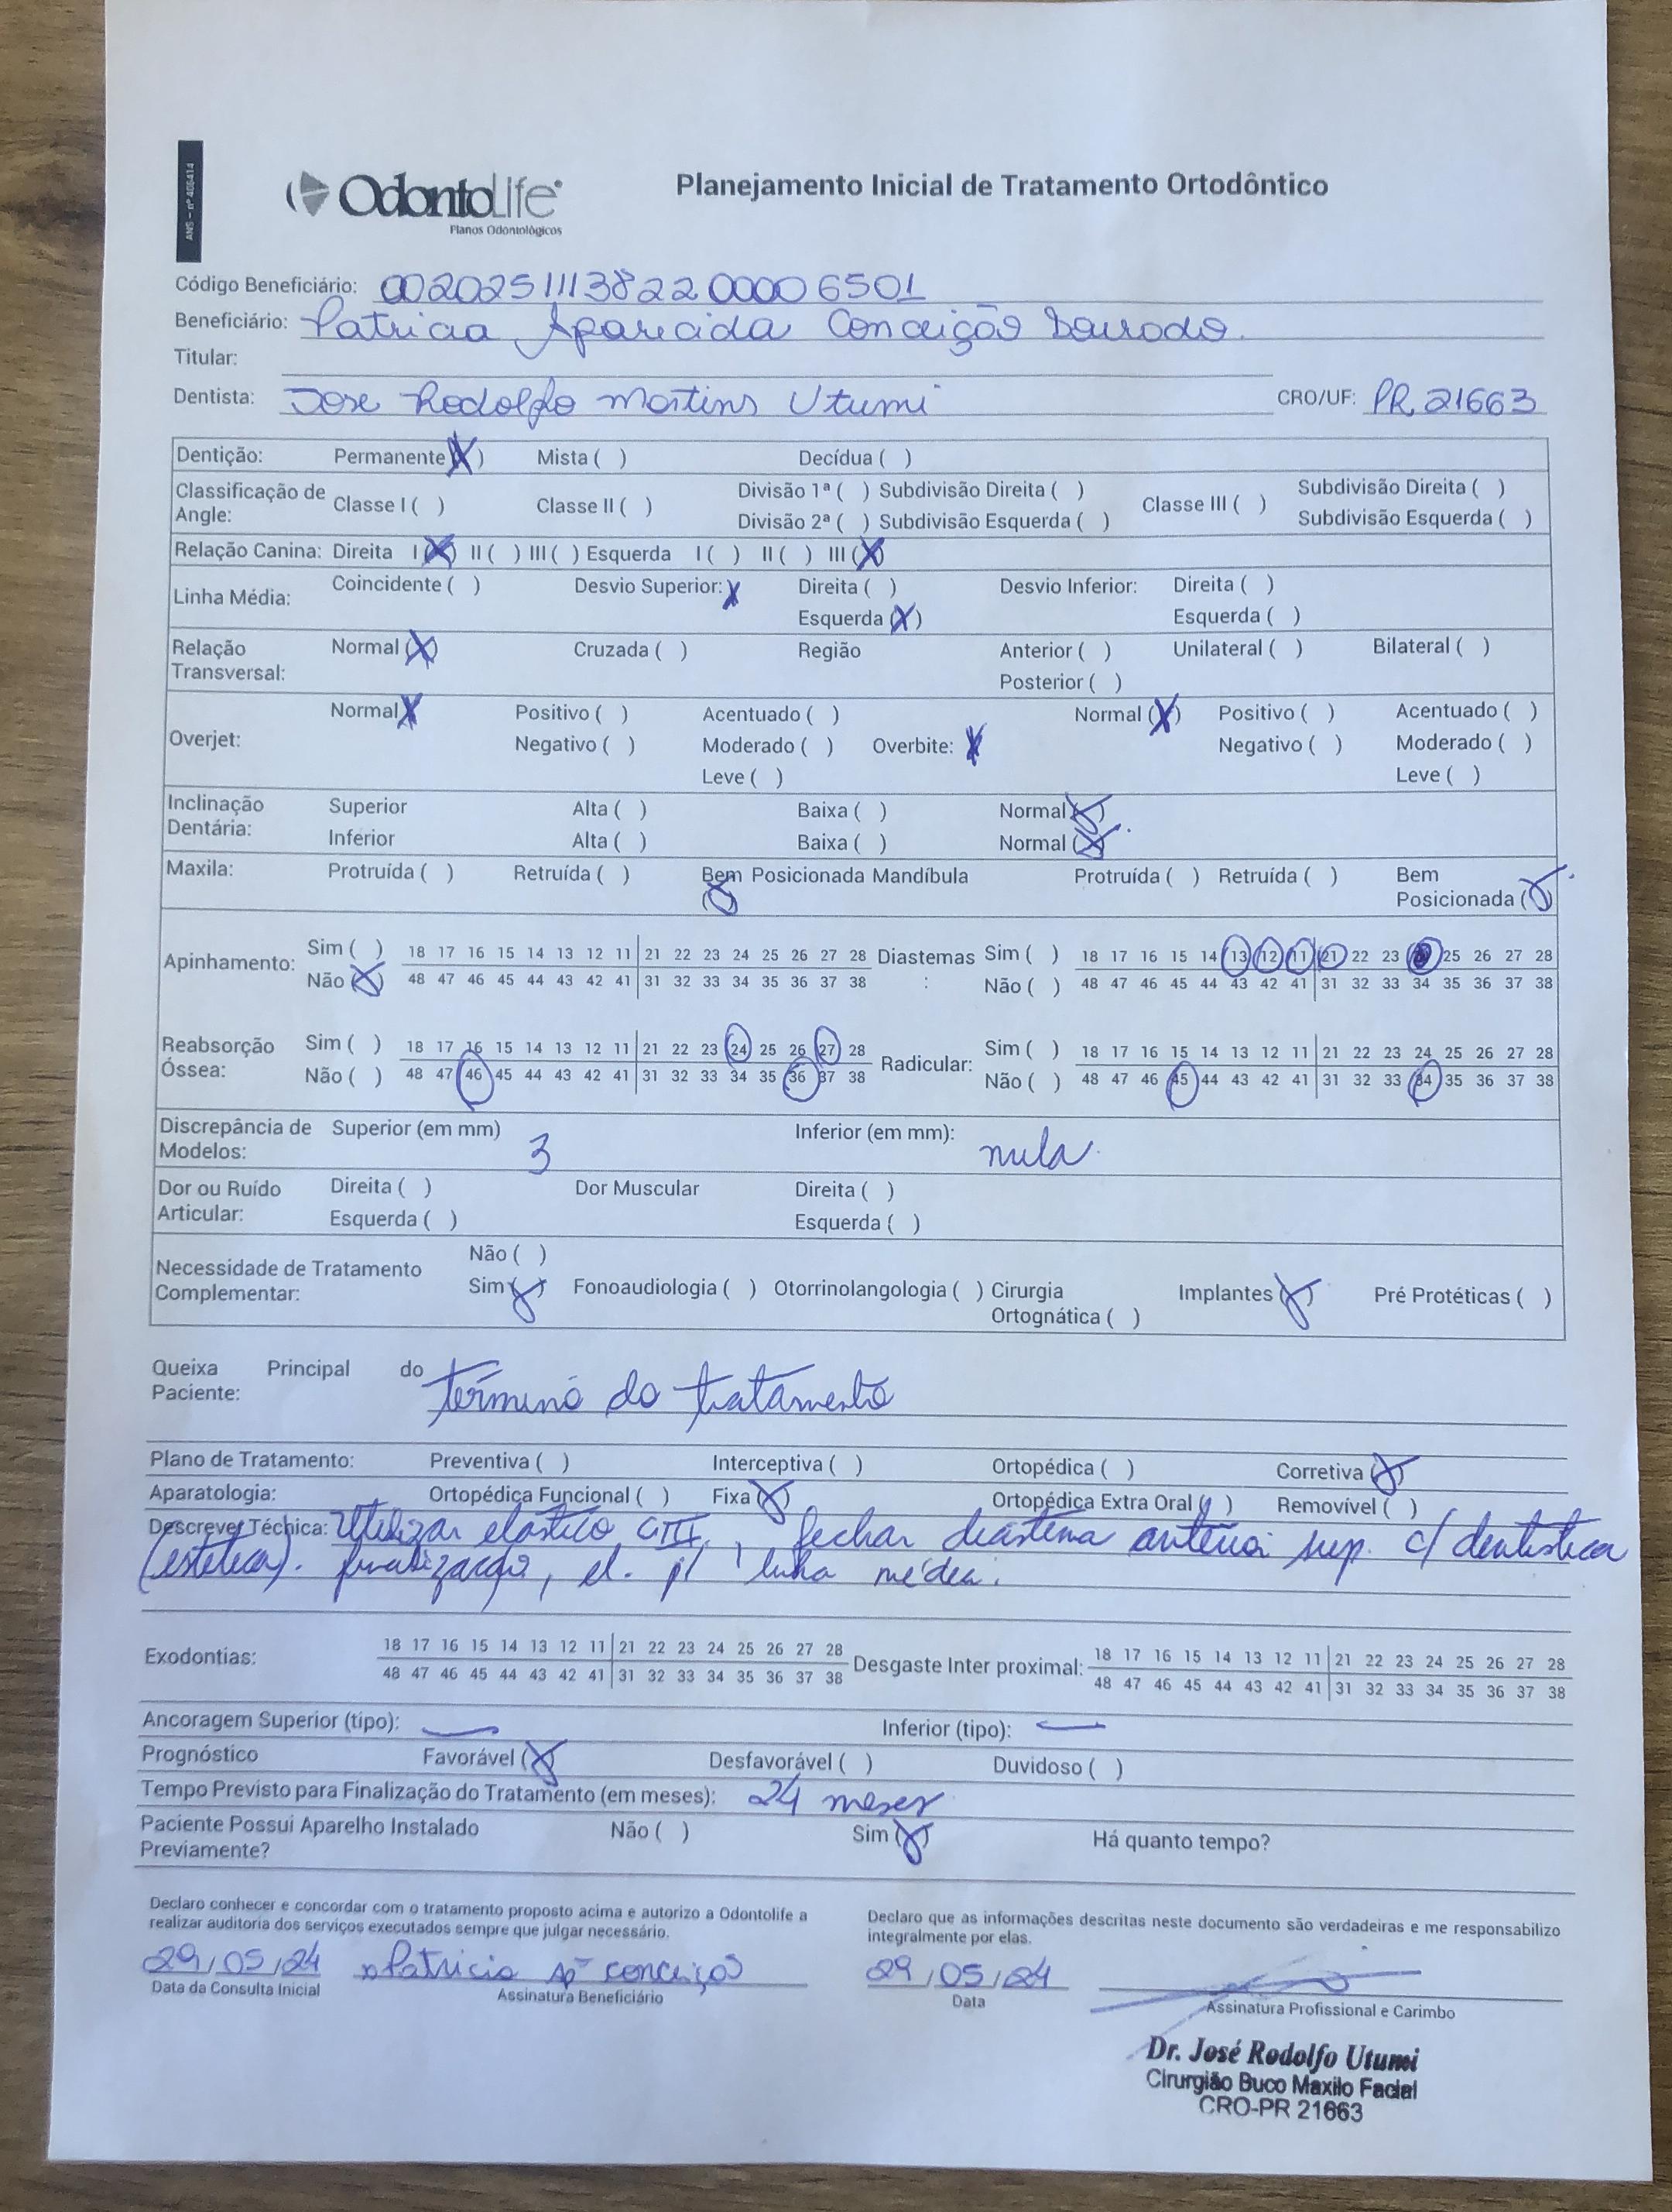 ANS – nº 406414
OdontoLife
Planos Odontológicos
Planejamento Inicial de Tratamento Ortodôntico
Código Beneficiário: 002025111382200006501
Beneficiário: Patricia Aparecida Conceição
Titular:
Dentista: Jose Rodolfo Martins Utumi CRO/UF: PR 21663
Dentição: Permanente (X) Mista ( ) Decídua ( )
Classificação de Angle: Classe I ( ) Classe II ( ) Divisão 1ª ( ) Subdivisão Direita ( ) Classe III ( ) Subdivisão Direita ( )
Divisão 2ª ( ) Subdivisão Esquerda ( ) Subdivisão Esquerda ( )
Relação Canina: Direita I (X) II ( ) III ( ) Esquerda I ( ) II ( ) III (X)
Linha Média: Coincidente ( ) Desvio Superior: X Direita ( ) Desvio Inferior: Direita ( )
Esquerda (X) Esquerda ( )
Relação Transversal: Normal (X) Cruzada ( ) Região Anterior ( ) Unilateral ( ) Bilateral ( )
Posterior ( )
Overjet: Normal X Positivo ( ) Acentuado ( ) Overbite: X Normal (X) Positivo ( ) Acentuado ( )
Negativo ( ) Moderado ( ) Negativo ( ) Moderado ( )
Leve ( ) Leve ( )
Inclinação Dentária: Superior Alta ( ) Baixa ( ) Normal (X)
Inferior Alta ( ) Baixa ( ) Normal (X)
Maxila: Protruída ( ) Retruída ( ) Bem Posicionada (X) Mandíbula Protruída ( ) Retruída ( ) Bem Posicionada (X)
Apinhamento: Sim ( ) 18 17 16 15 14 13 12 11 21 22 23 24 25 26 27 28 Diastemas : Sim ( ) 18 17 16 15 14 13 12 11 21 22 23 25 26 27 28
Não (X) 48 47 46 45 44 43 42 41 31 32 33 34 35 36 37 38 Não ( ) 48 47 46 45 44 43 42 41 31 32 33 34 35 36 37 38
Reabsorção Óssea: Sim ( ) 18 17 16 15 14 13 12 11 21 22 23 24 25 26 27 28 Radicular: Sim ( ) 18 17 16 15 14 13 12 11 21 22 23 24 25 26 27 28
Não ( ) 48 47 46 45 44 43 42 41 31 32 33 34 35 36 37 38 Não ( ) 48 47 46 45 44 43 42 41 31 32 33 34 35 36 37 38
Discrepância de Modelos: Superior (em mm) 3 Inferior (em mm): nula.
Dor ou Ruído Articular: Direita ( ) Dor Muscular Direita ( )
Esquerda ( ) Esquerda ( )
Necessidade de Tratamento Complementar: Não ( )
Sim (X) Fonoaudiologia ( ) Otorrinolangologia ( ) Cirurgia Ortognática ( ) Implantes (X) Pré Protéticas ( )
Queixa Principal do Paciente: término do tratamento
Plano de Tratamento: Preventiva ( ) Interceptiva ( ) Ortopédica ( ) Corretiva (X)
Aparatologia: Ortopédica Funcional ( ) Fixa (X) Ortopédica Extra Oral ( ) Removível ( )
Descrever Técnica: Utilizar elástico Cl III, fechar diastema anterior sup. c/ dentistica
(estética). finalização, el. p/ linha média.
Exodontias: 18 17 16 15 14 13 12 11 21 22 23 24 25 26 27 28 Desgaste Inter proximal: 18 17 16 15 14 13 12 11 21 22 23 24 25 26 27 28
48 47 46 45 44 43 42 41 31 32 33 34 35 36 37 38 48 47 46 45 44 43 42 41 31 32 33 34 35 36 37 38
Ancoragem Superior (tipo): — Inferior (tipo): —
Prognóstico Favorável (X) Desfavorável ( ) Duvidoso ( )
Tempo Previsto para Finalização do Tratamento (em meses): 24 meses
Paciente Possui Aparelho Instalado Previamente? Não ( ) Sim (X) Há quanto tempo?
Declaro conhecer e concordar com o tratamento proposto acima e autorizo a Odontolife a
realizar auditoria dos serviços executados sempre que julgar necessário.
Declaro que as informações descritas neste documento são verdadeiras e me responsabilizo
integralmente por elas.
29/05/24 Patricia Apª Conceição 29/05/24
Data da Consulta Inicial Assinatura Beneficiário Data Assinatura Profissional e Carimbo
Dr. José Rodolfo Utumi
Cirurgião Buco Maxilo Facial
CRO-PR 21663